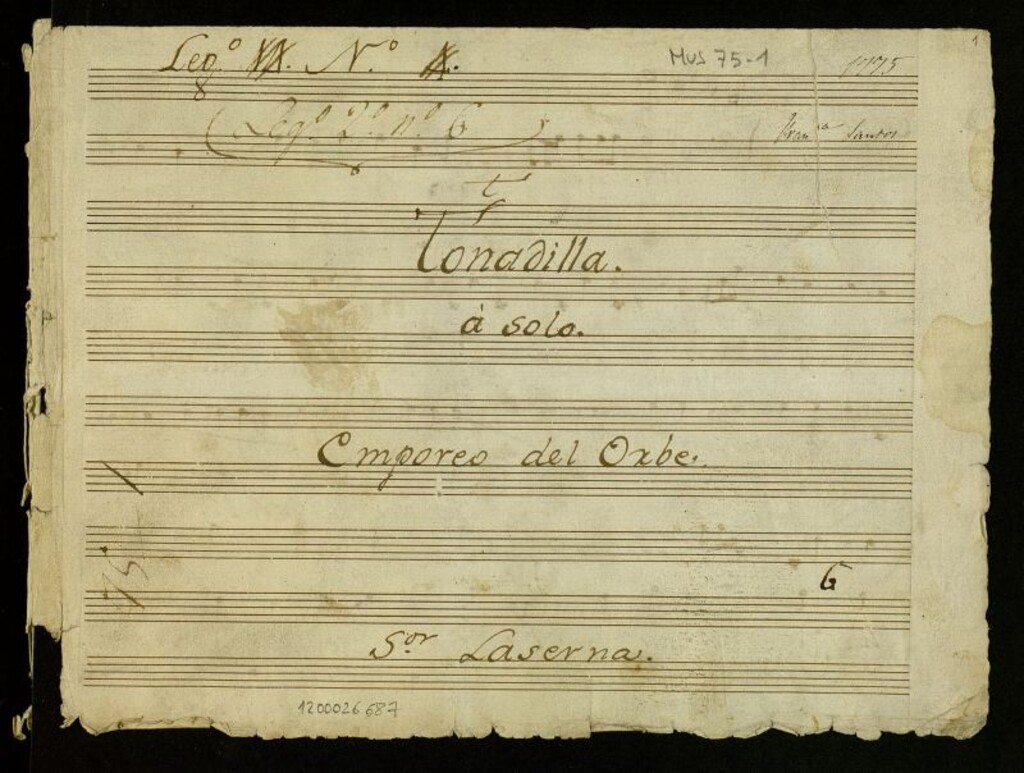 Leg.º Nº
Mus 75-1
1775
1
(Legº. 2º. nº. 6)
Franca Santos
t
Tonadilla.
á solo.
Emporeo del Orbe.
1
75
6
S.or Laserna.
1200026687